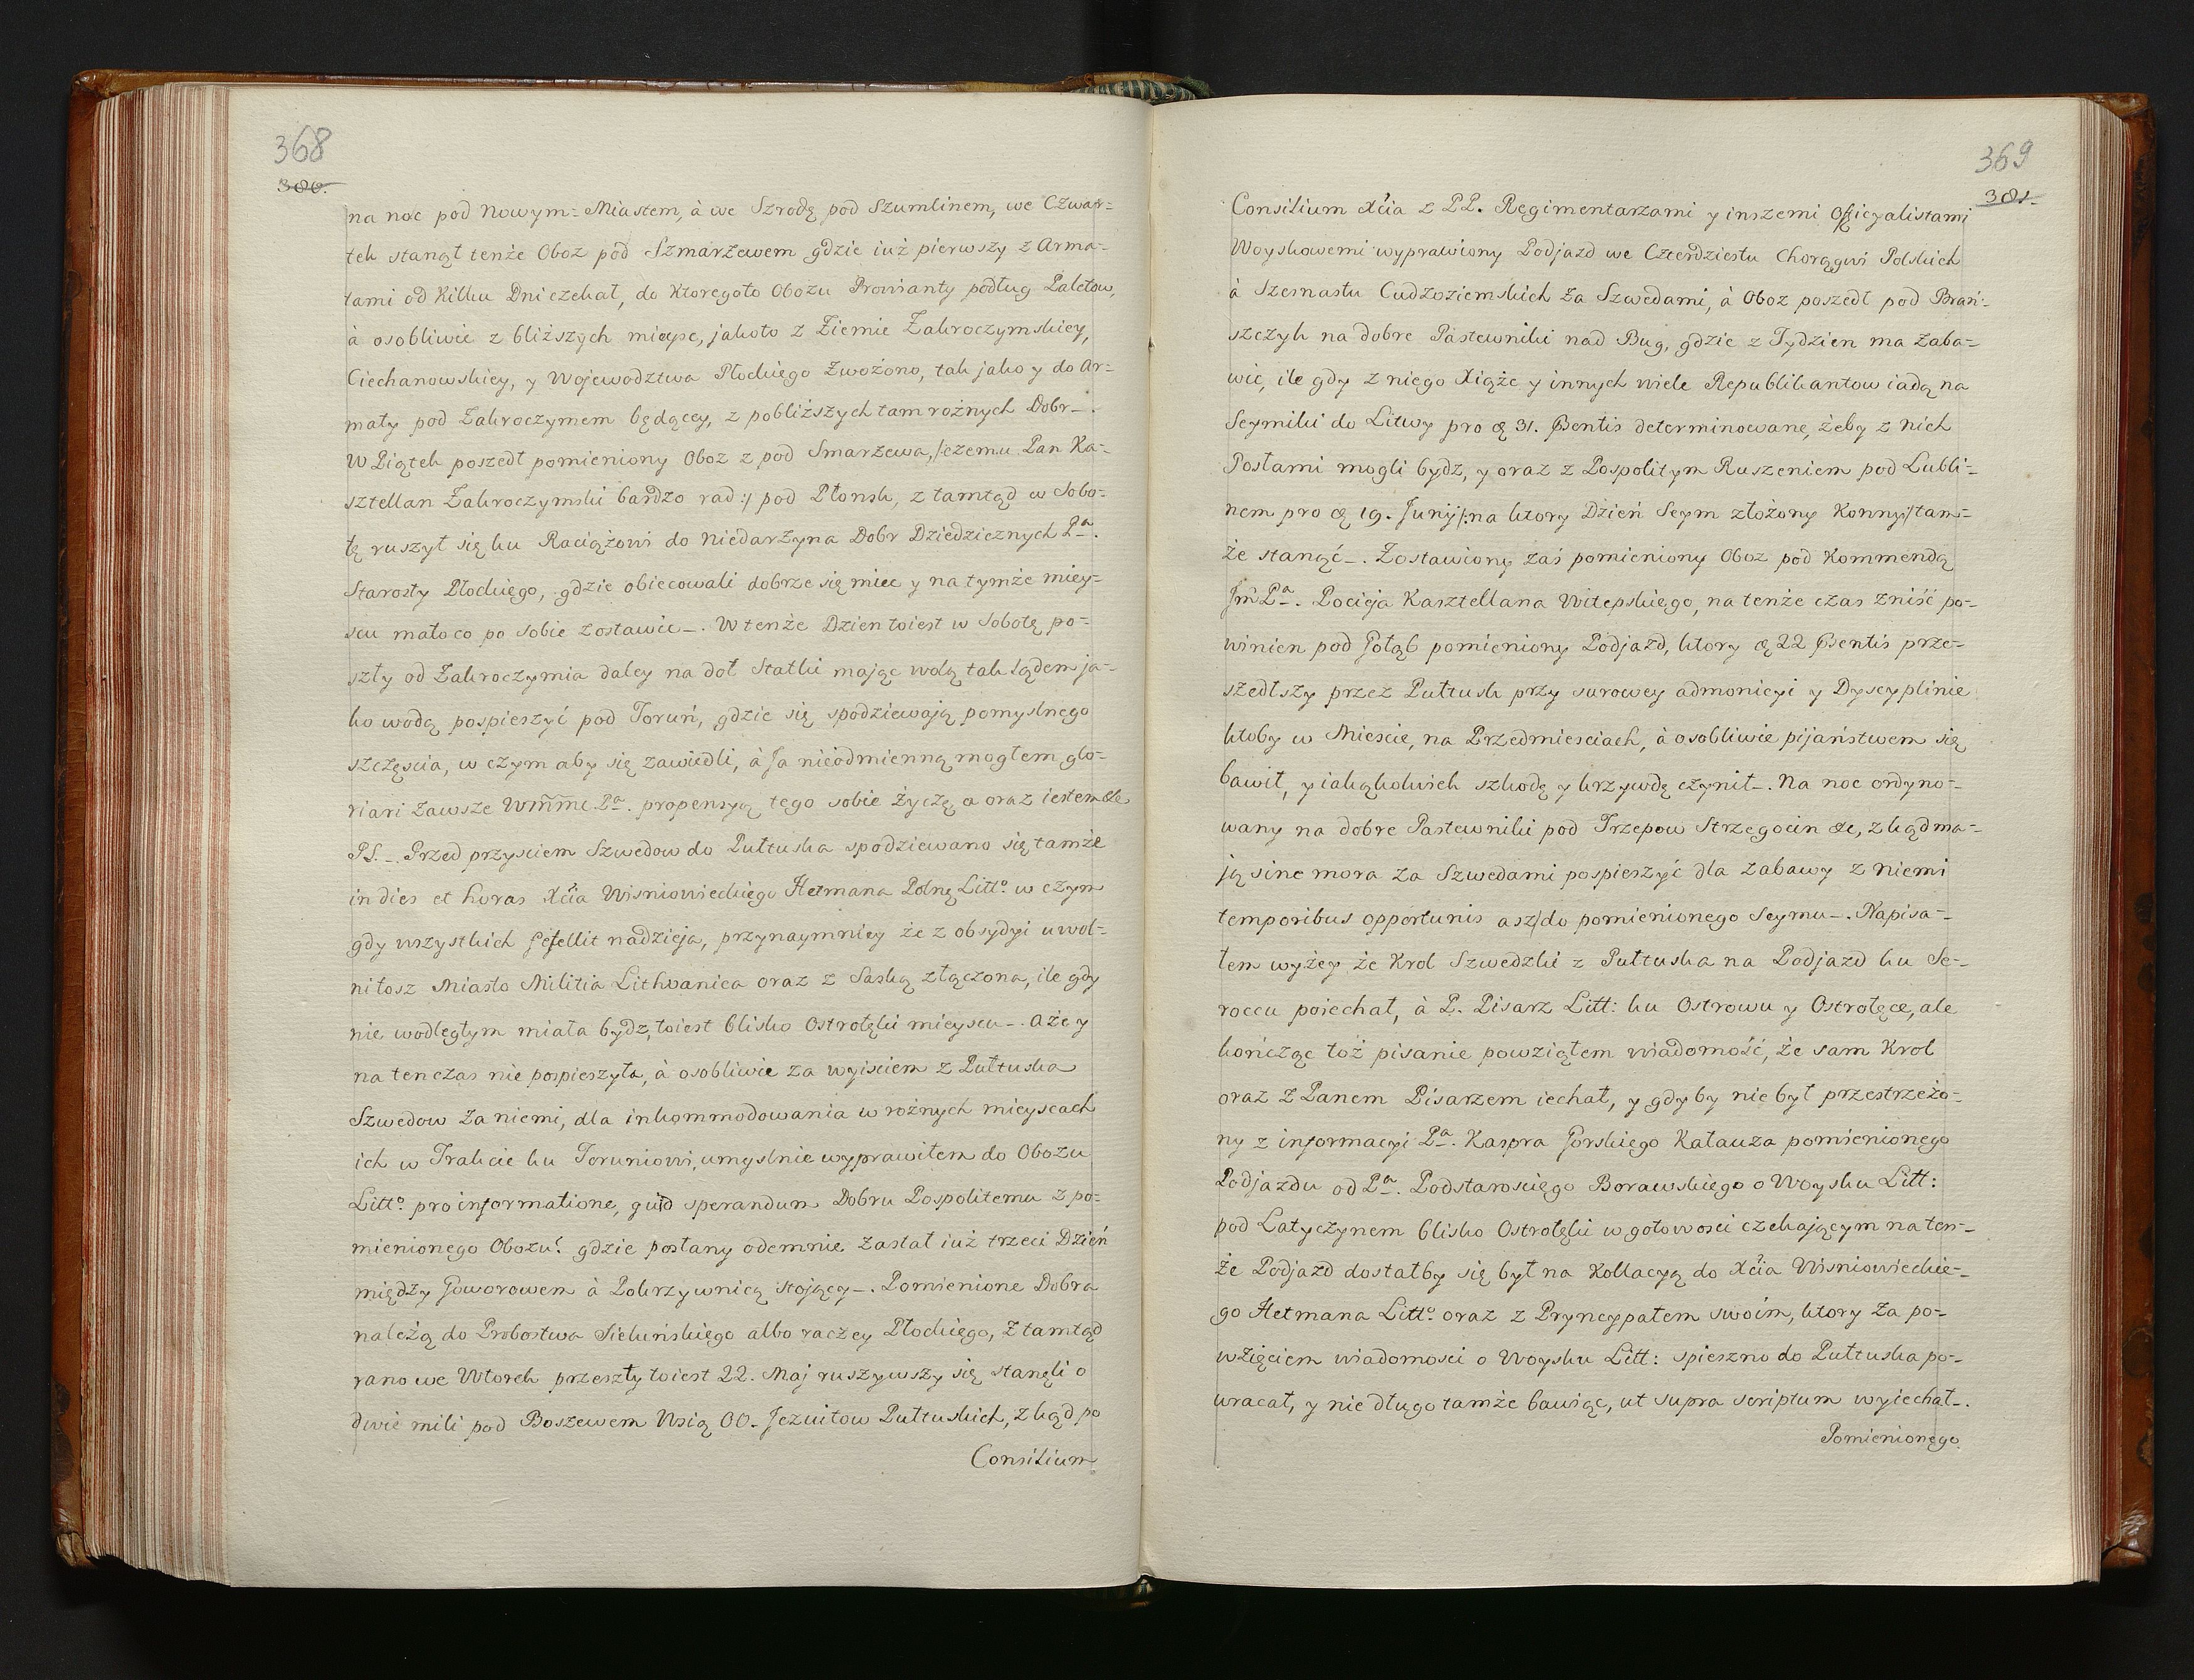 368
380.
na noc pod Nowym=Miastem, à we Szrodę pod Szumlinem, we Czwar=
tek stanął tenże Oboz pod Szmarzewem gdzie iuż pierwszy z Arma=
tami od Kilku Dni czekał, do Ktoregoto Obozu Prowianty podług Paletow,
à osobliwie z bliższych mieysc, jakoto z Ziemie Zakroczymskiey,
Ciechanowskiey, y Wojewodztwa Płockiego Zwożono, tak jako y do Ar=
maty pod Zakroczymem będącey, z pobliższych tam rożnych Dobr_.
W Piątek poszedł pomieniony Oboz z pod Smarzewa, /:czemu Pan Ka=
sztellan Zakroczymski bardzo rad:/ pod Płonsk, z tamtąd w Sobo=
tę ruszył się ku Raciążowi do Niedarżyna Dobr Dziedzicznych Pa.
Starosty Płockiego, gdzie obiecowali dobrze się miec y na tymże miey=
scu mało co po sobie zostawic_. W tenże Dzien toiest w Sobotę po=
szły od Zakroczymia daley na doł Statki mając wolą tak lądem ja=
ko wodą pospieszyć pod Toruń, gdzie się spodziewają pomyslnego
szczęscia, w czym aby się zawiedli, à Ja nieodmienną mogłem glo=
riari Zawsze Wm̃m̃e Pa. propensyą tego sobie życzę a oraz iestem &c
PS._ Przed przysciem Szwedow do Pułtuska spodziewano się tamże
in dies et horas Xcia Wisniowieckiego Hetmana Polnę Litto. w czym
gdy wszystkich fefellit nadzieja, przynaymniey że z obsydyi uwol=
niłosz Miasto Militia Lithvanica oraz z Saską złączona, ile gdy
nie wodległym miała bydz, toiest blisko Ostrołęki mieyscu_. Aże y
na tenczas nie pospieszyła, à osobliwie za wyisciem z Pułtuska
Szwedow Za niemi, dla inkommodowania w rożnych mieyscach
ich w Trakcie ku Toruniowi, umyslnie wyprawiłem do Obozu
Litto. pro informatione, quid sperandum Dobru Pospolitemu z po=
mienionego Obozu? gdzie posłany odemnie Zastał iuż trzeci Dzień
między Goworowem à Pokrzywnicą stojący_. Pomienione Dobra
należą do Probostwa Sieluńskiego albo raczey Płockiego, Z tamtąd
rano we Wtorek przeszły toiest 22. Maj ruszywszy się stanęli o
dwie mili pod Boszewem Wsią OO. Jezuitow Pułtuskich, Zkąd po
Consilium
369
381.
Consilium Xcia z PP. Regimentarzami y inszemi Oficyalistami
Woyskowemi wyprawiony Podjazd we Czterdziestu Chorągwi Polskich
à Szesnastu Cudzoziemskich Za Szwedami, à Oboz poszedł pod Brań=
szczyk na dobre Pastewniki nad Bug, gdzie z Tydzien ma Zaba=
wic, ile gdy z niego Xiąże y innych wiele Republikantow iadą na
Seymiki do Litwy pro 31. Psentis determinowane, żeby z nich
Posłami mogli bydz, y oraz z Pospolitym Ruszeniem pod Lubli=
nem pro 19. Junij /:na ktory Dzień Seym złożony Konny:/ tam=
że stanąć_. Zostawiony zaś pomieniony Oboz pod Kommendą
Jm̃ Pa. Pocieja Kasztellana Witepskiego, na tenże czas zniść po=
winien pod Gołąb pomieniony Podjazd, ktory 22 Psentis prze=
szedłszy przez Pułtusk przy surowey admonicyi y Dyscyplinie
ktoby w Miescie, na Przedmiesciach, à osobliwie pijaństwem się
bawił, y iakąkolwiek szkodę y krzywdę czynił_. Na noc ordyno=
wany na dobre Pastewniki pod Trzepow Strzegocin &c, zkąd ma=
ją sine mora za Szwedami pospieszyć dla zabawy z niemi
temporibus opportunis asz do pomienionego Seymu_. Napisa=
łem wyżey że Krol Szwedzki z Pułtuska na Podjazd ku Se=
roccu poiechał, à P. Pisarz Litt: ku Ostrowu y Ostrołęce, ale
kończąc toż pisanie powziąłem wiadomość, że sam Krol
oraz z Panem Pisarzem iechał, y gdyby nie był przestrzeżo=
ny z informacyi Pa. Kaspra Gorskiego Katauza pomienionego
Podjazdu od Pa. Podstarosciego Borawskiego o Woysku Litt:
pod Latyczynem blisko Ostrołęki w gotowosci czekającym na ten=
że Podjazd dostałby się był na Kollacyą do Xcia Wisniowieckie=
go Hetmana Litto. oraz z Pryncypałem swoim, ktory Za po=
wzięciem wiadomosci o Woysku Litt: spieszno do Pułtuska po=
wracał, y nie długo tamże bawiąc, ut supra scriptum wyiechał_.
Pomienionego